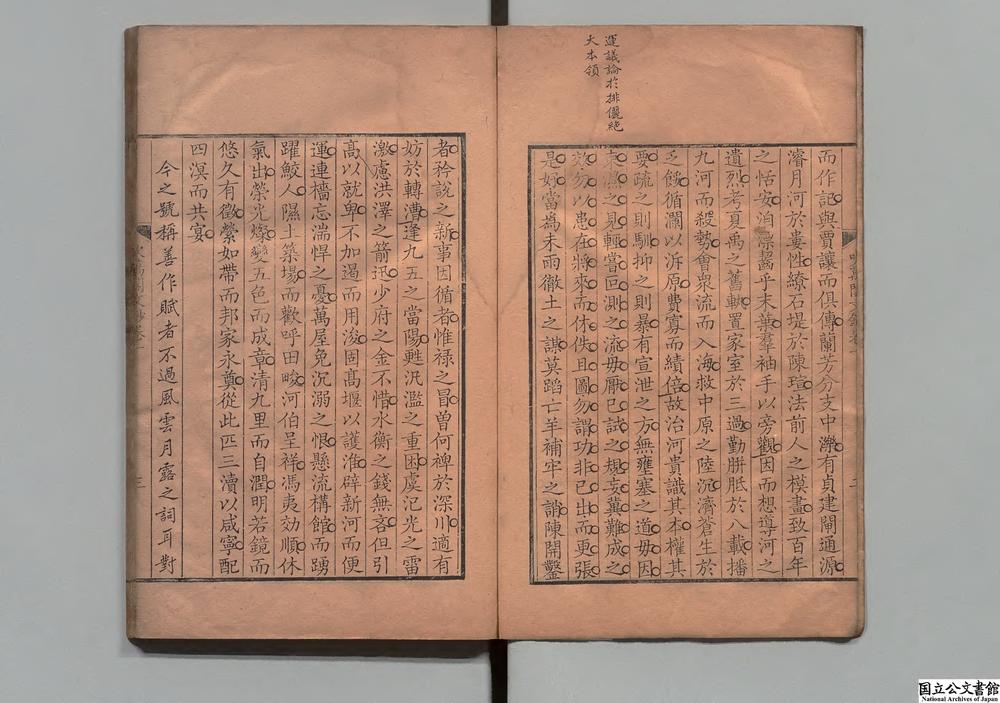 運議論於排儷絶
大本領
而作記與賈讓而俱傳蘭芳分支中灤有貞建閘通源
濬月河於婁性繚石堤於陳瑄法前人之模畫致百年
之恬安洎漂齧乎末葉羣袖手以旁觀因而想導河之
遺烈考夏禹之舊軌置家室於三過勤胼胝於八載播
九河而殺勢會衆流而入海救中原之陸沉濟蒼生於
乏餒循瀾以泝原費寡而績倍故治河貴識其本權其
要疏之則馴抑之則暴有宣泄之方無壅塞之道毋因
之見輕嘗回測之流毋厭已試之規妄冀難成之
效勿以患在將來而休佚且圖勿謂功非已出而更張
是好當為未雨徹土之謀莫蹈亡羊補牢之誚陳開鑿
者矜說之新事因循者惟禄之冒曽何裨於深川適有
妨於轉漕逢九五之當陽甦汎濫之重困虞汜光之雷
激慮洪澤之箭迅少府之金不惜水衡之錢無吝但引
高以就卑不加遏而用浚固高堰以護淮辟新河而便
運連檣忘湍悍之憂萬屋免沉溺之恨懸流構館而踴
躍鮫人隰土築場而歡呼田畯河伯呈祥馮夷効順休
氣出榮光燦變五色而成章清九里而自潤明若鏡而
悠久有徵縈如帶而邦家永奠從此匹三瀆以咸寧配
四溟而共宴
今之號稱善作賦者不過風雲月露之詞耳對
三
国立公文書館
National Archives of Japan